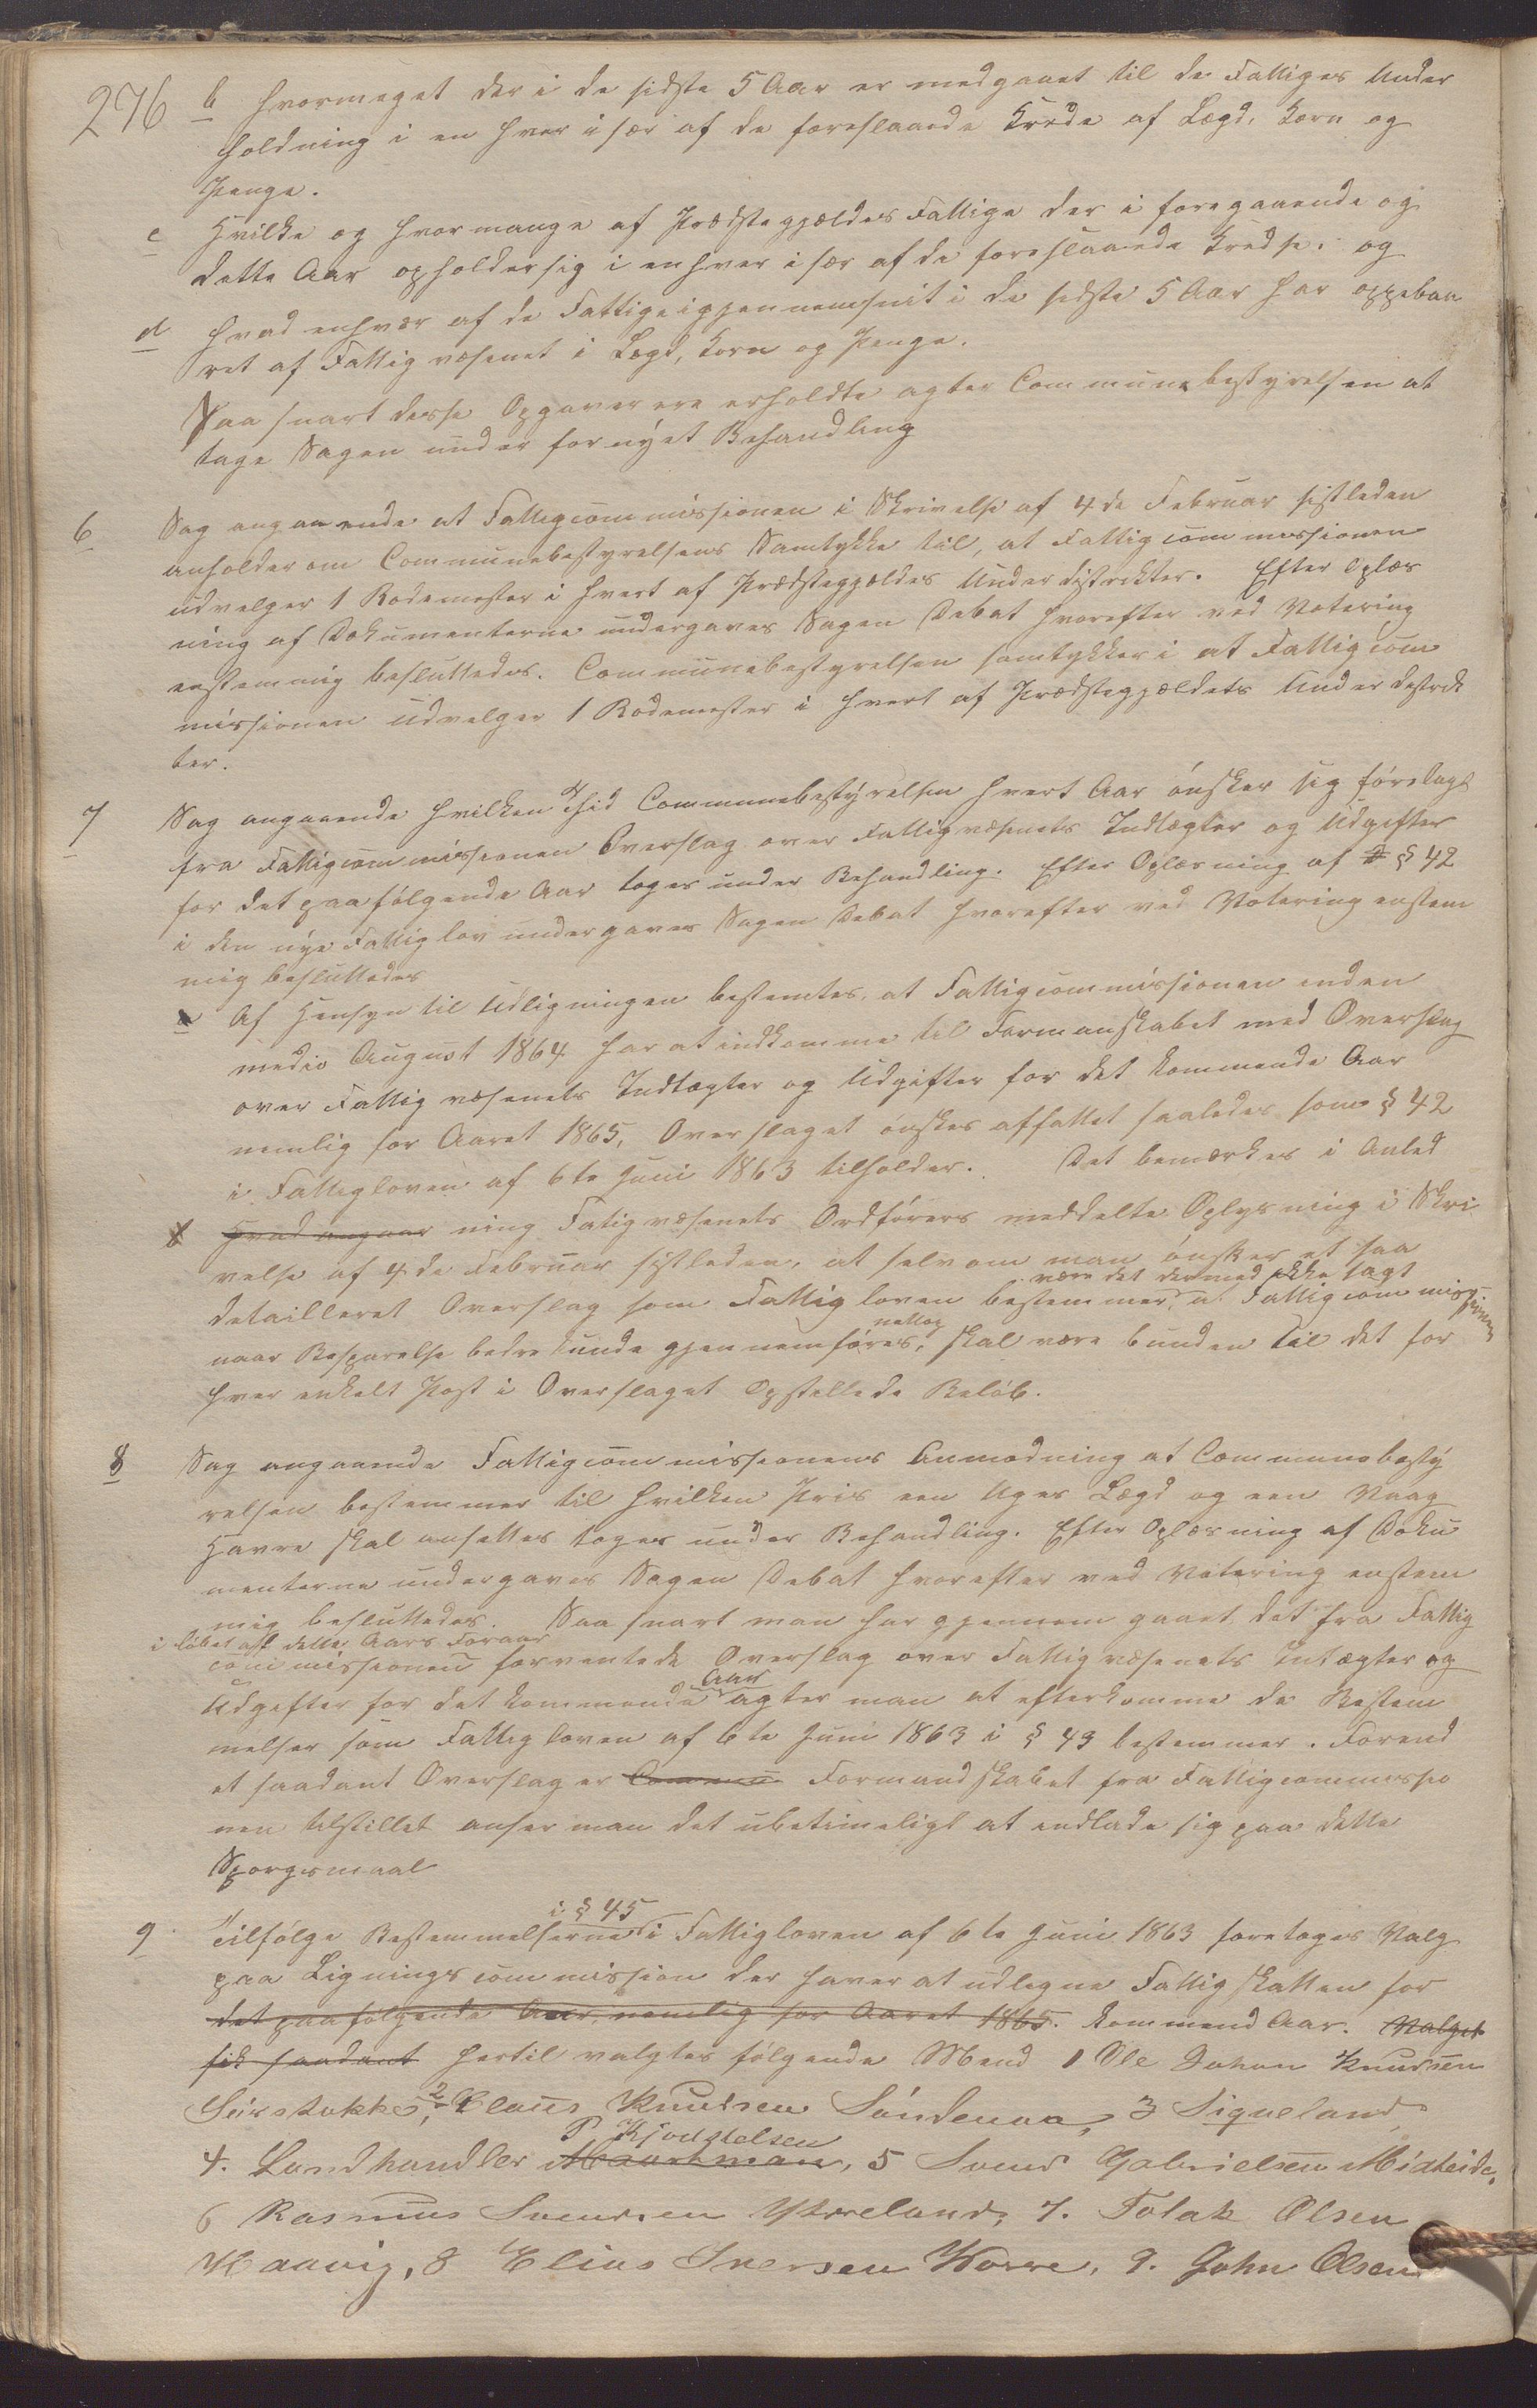 276
b hvormeget der i de sidste 5 Aar er medgaaet til de Fattiges Under
holdning i en hver især af de foreslaaede Krede af Lægd, Korn og
Penge.
c Hvilke og hvormange af Prædstegjældes Fattige der i foregaaende og
dette Aar opholder sig i enhver især af de foreslaaede Kredse. og
d hvad enhver af de Fattige igjennemsnit i de sidste 5 Aar har oppebaa
ret af Fattigvæsenet i Lægd, Korn og Penge.
Saa snart disse Opgaver ere erholdte agter Communebestyrelsen at
tage Sagen under fornyet Behandling
6 Sag angaaende at Fattigcommissionen i Skrivelse af 4de Februar sistleden
anholder om Communebestyrelsens Samtykke til, at Fattigcommissionen
udvelger 1 Rodemester i hvert af Prædstegjældes Underdistrikter. Efter Oplæs
ning af Dokumenterne undergaves Sagen Debat hvorefter ved Votering
enstemmig besluttedes. Communebestyrelsen samtykker i at Fattigcom
missionen udvelger 1 Rodemester i hvert af Prædstegjældets Underdistrik
ter.
7 Sag angaaende hvilken Thid Communebestyrelsen hvert Aar ønsker sig førelagt
fra Fattigcommissionen Overslag over Fattigvæsenets Indtægter og Udgifter
for det paafølgende Aar toges under Behandling. Efter Oplæsning af § 42
i den nye Fattiglov undergaves Sagen Debat hvorefter ved Votering enstem
mig besluttedes
a Af Hensyn til Udligningen bestemtes at Fattigcommissionen inden
medio August 1864 har at indkomme til Formanskabet med Overslag
over Fattigvæsenets Indtægter og Udgifter for det kommende Aar
nemlig for Aaret 1865, Overslaget ønskes affattet saaledes som § 42
i Fattigloven af 6te Juni 1863 tilholder. Det bemærkes i Anled
Hvad angaar ning Fatigvæsenets Ordførers meddelte Oplysning i Skri
velse af 4de Februar sistleden, at selv om man ønsker et saa
være det dermed ikke sagt
detailleret Overslag som Fattigloven bestemmer, at Fattigcommissionen
nettop
naar Besparelse bedre kunde gjennemføres, skal være bunden til det for
hver enkelt Post i Overslaget Opstillede Beløb.
8 Sag angaaende Fattigcommissionens Anmodning at Communebesty
relsen bestemmer til hvilken Pris een Uges Lægd og een Vaag
Havre skal ansettes toges under Behandling. Efter Oplæsning af Doku
menterne undergaves Sagen Debat hvorefter ved Votering enstem
mig besluttedes. Saa snart man har gjennemgaaet det fra Fattig
i løbet af dette Aars Foraar
commissionen forventede Overslag over Fattigvæsenets Intægter og
Aar
Udgifter for det kommende agter man at efterkomme de Bestem
melser som Fattigloven af 6te Juni 1863 i § 43 bestemmer. Forend
et saadant Overslag er Commun Formandskabet fra Fattigcommissio
nen tilstillet anser man det ubetimeligt at indlade sig paa dette
Sporgsmaal
i § 45
9 Tilfølge Bestemmelserne i Fattigloven af 6te Juni 1863 foretoges Valg
paa Ligningscommission der haver at udligne Fattigskatten for
det paafølgende Aar, nemlig for Aaret 1865. kommend Aar. Valget
fik saadant hertil valgtes følgende Mend 1 Ole Johan Knudsen
2 Claus Knutsen Søndenaa, 3 Siqveland,
P. Kjoustelsen
4. Landhandler, 5 Svend Gabrielsen Midteide,
6 Rasmus Svendsen Ytreland, 7. Folak Olsen
Haavig, 8 Elias Iversen Worre, 9. John Olsen